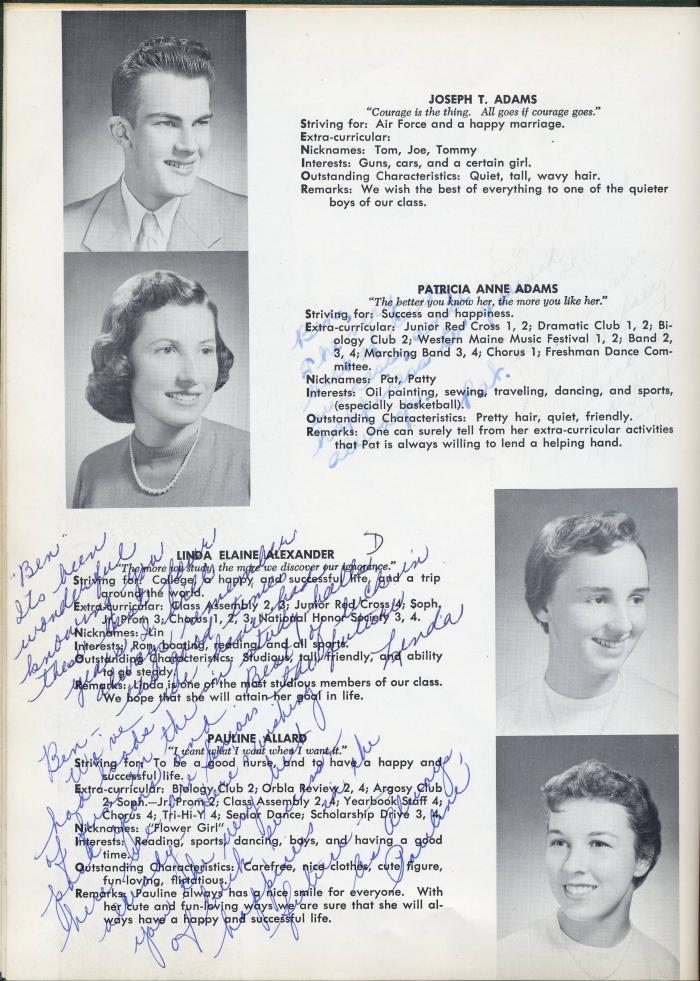 JOSEPH T. ADAMS
"Courage is the thing. All goes if courage goes."
Striving for: Air Force and a happy marriage.
Extra-curricular:
Nicknames: Tom, Joe, Tommy
Interests: Guns, cars, and a certain girl.
Outstanding Characteristics: Quiet, tall, wavy hair.
Remarks: We wish the best of everything to one of the quieter
boys of our class.
PATRICIA ANNE ADAMS
"The better you know her, the more you like her."
Striving for: Success and happiness.
Extra-curricular: Junior Red Cross 1, 2; Dramatic Club 1, 2; Bi-
ology Club 2; Western Maine Music Festival 1, 2; Band 2,
3, 4; Marching Band 3, 4; Chorus 1; Freshman Dance Com-
mittee.
Nicknames: Pat, Patty
Interests: Oil painting, sewing, traveling, dancing, and sports,
(especially basketball).
Outstanding Characteristics: Pretty hair, quiet, friendly.
Remarks: One can surely tell from her extra-curricular activities
that Pat is always willing to lend a helping hand.
Pat.
LINDA ELAINE ALEXANDER
"The more we study, the more we discover our ignorance."
Striving for: College, a happy and successful life, and a trip
around the world.
Extra-curricular: Class Assembly 2, 3; Junior Red Cross 4; Soph.
Jr. Prom 3; Chorus 1, 2, 3; National Honor Society 3, 4.
Nicknames: Lin
Interests: Ron, boating, reading, and all sports.
Outstanding Characteristics: Studious, tall, friendly, and ability
to go steady.
Remarks: Linda is one of the most studious members of our class.
We hope that she will attain her goal in life.
"Ben"
Its been
wonderful
knowing you
these
Linda
PAULINE ALLARD
"I want what I want when I want it."
Striving for: To be a good nurse, and to have a happy and
successful life.
Extra-curricular: Biology Club 2; Orbla Review 2, 4; Argosy Club
2; Soph.—Jr. Prom 2; Class Assembly 2, 4; Yearbook Staff 4;
Chorus 4; Tri-Hi-Y 4; Senior Dance; Scholarship Drive 3, 4.
Nicknames: "Flower Girl"
Interests: Reading, sports, dancing, boys, and having a good
time.
Outstanding Characteristics: Carefree, nice clothes, cute figure,
fun-loving, flirtatious.
Remarks: Pauline always has a nice smile for everyone. With
her cute and fun-loving ways we are sure that she will al-
ways have a happy and successful life.
Ben-
We've
had loads
of fun
wishing
you the very best
of luck
happiness in the
future
Pauline